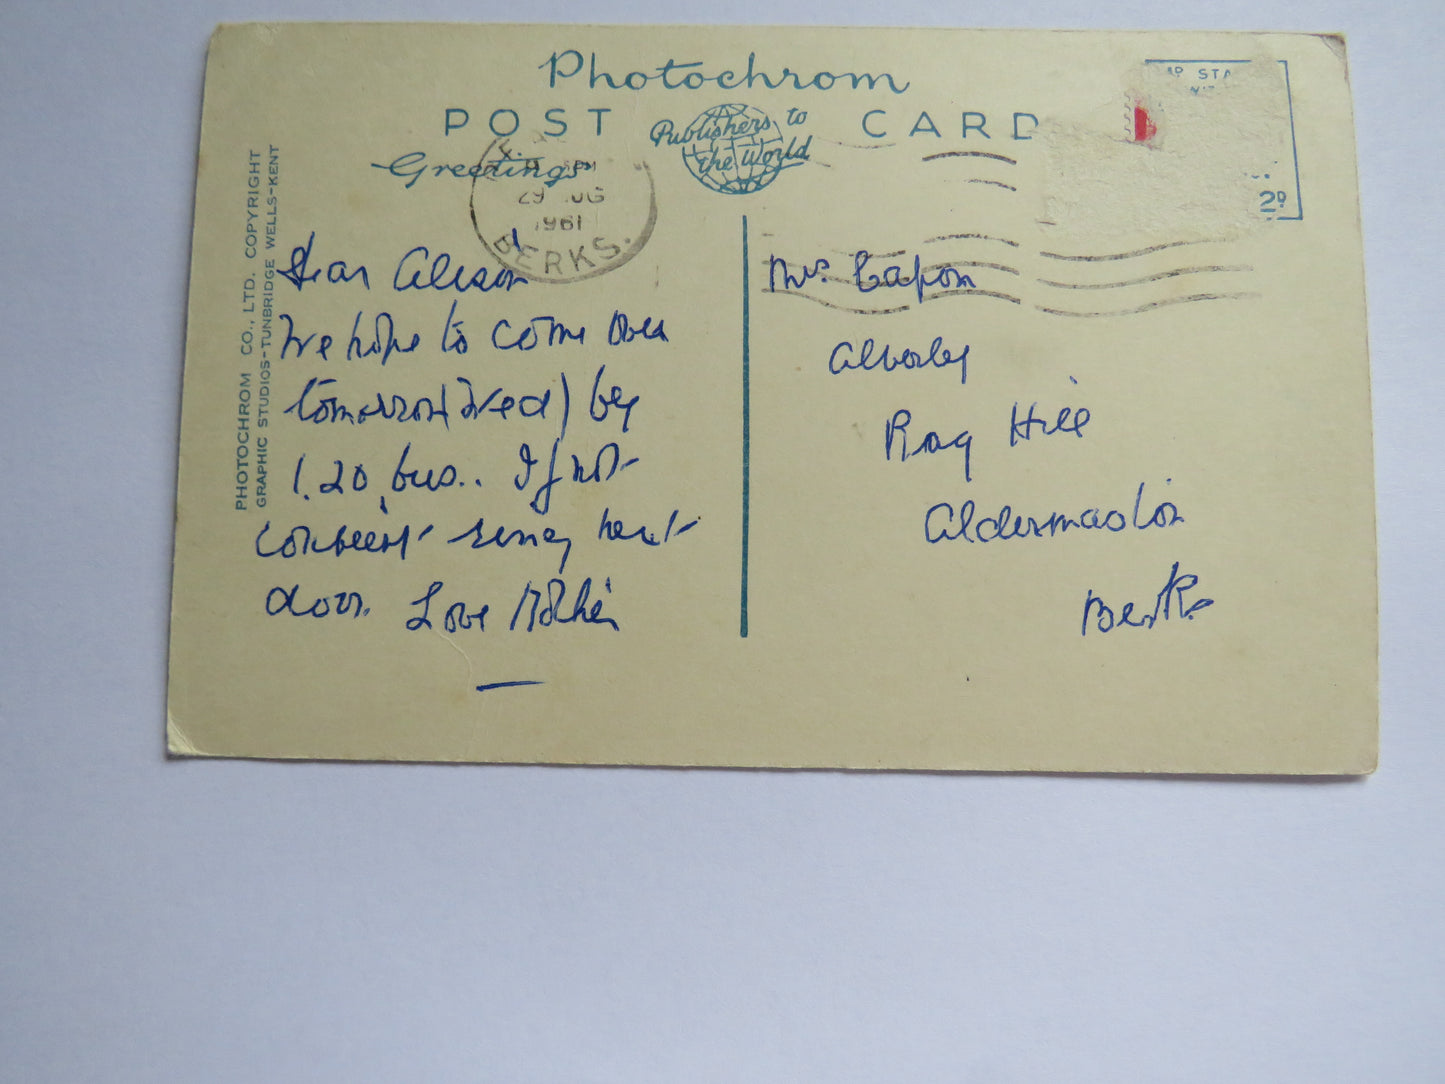 Photochrom
POST CARD
Publishers to
the World
Greetings
PM
29 UG
1961
BERKS.
STA
2D
PHOTOCHROM CO., LTD. COPYRIGHT
GRAPHIC STUDIOS-TUNBRIDGE WELLS-KENT
Dear Alison
We hope to come over
tomorrow (Wed) by
1.20 bus.. If not
ring next
door. Love Mother
Mrs. Capon
Rag Hill
Aldermaston
Berks